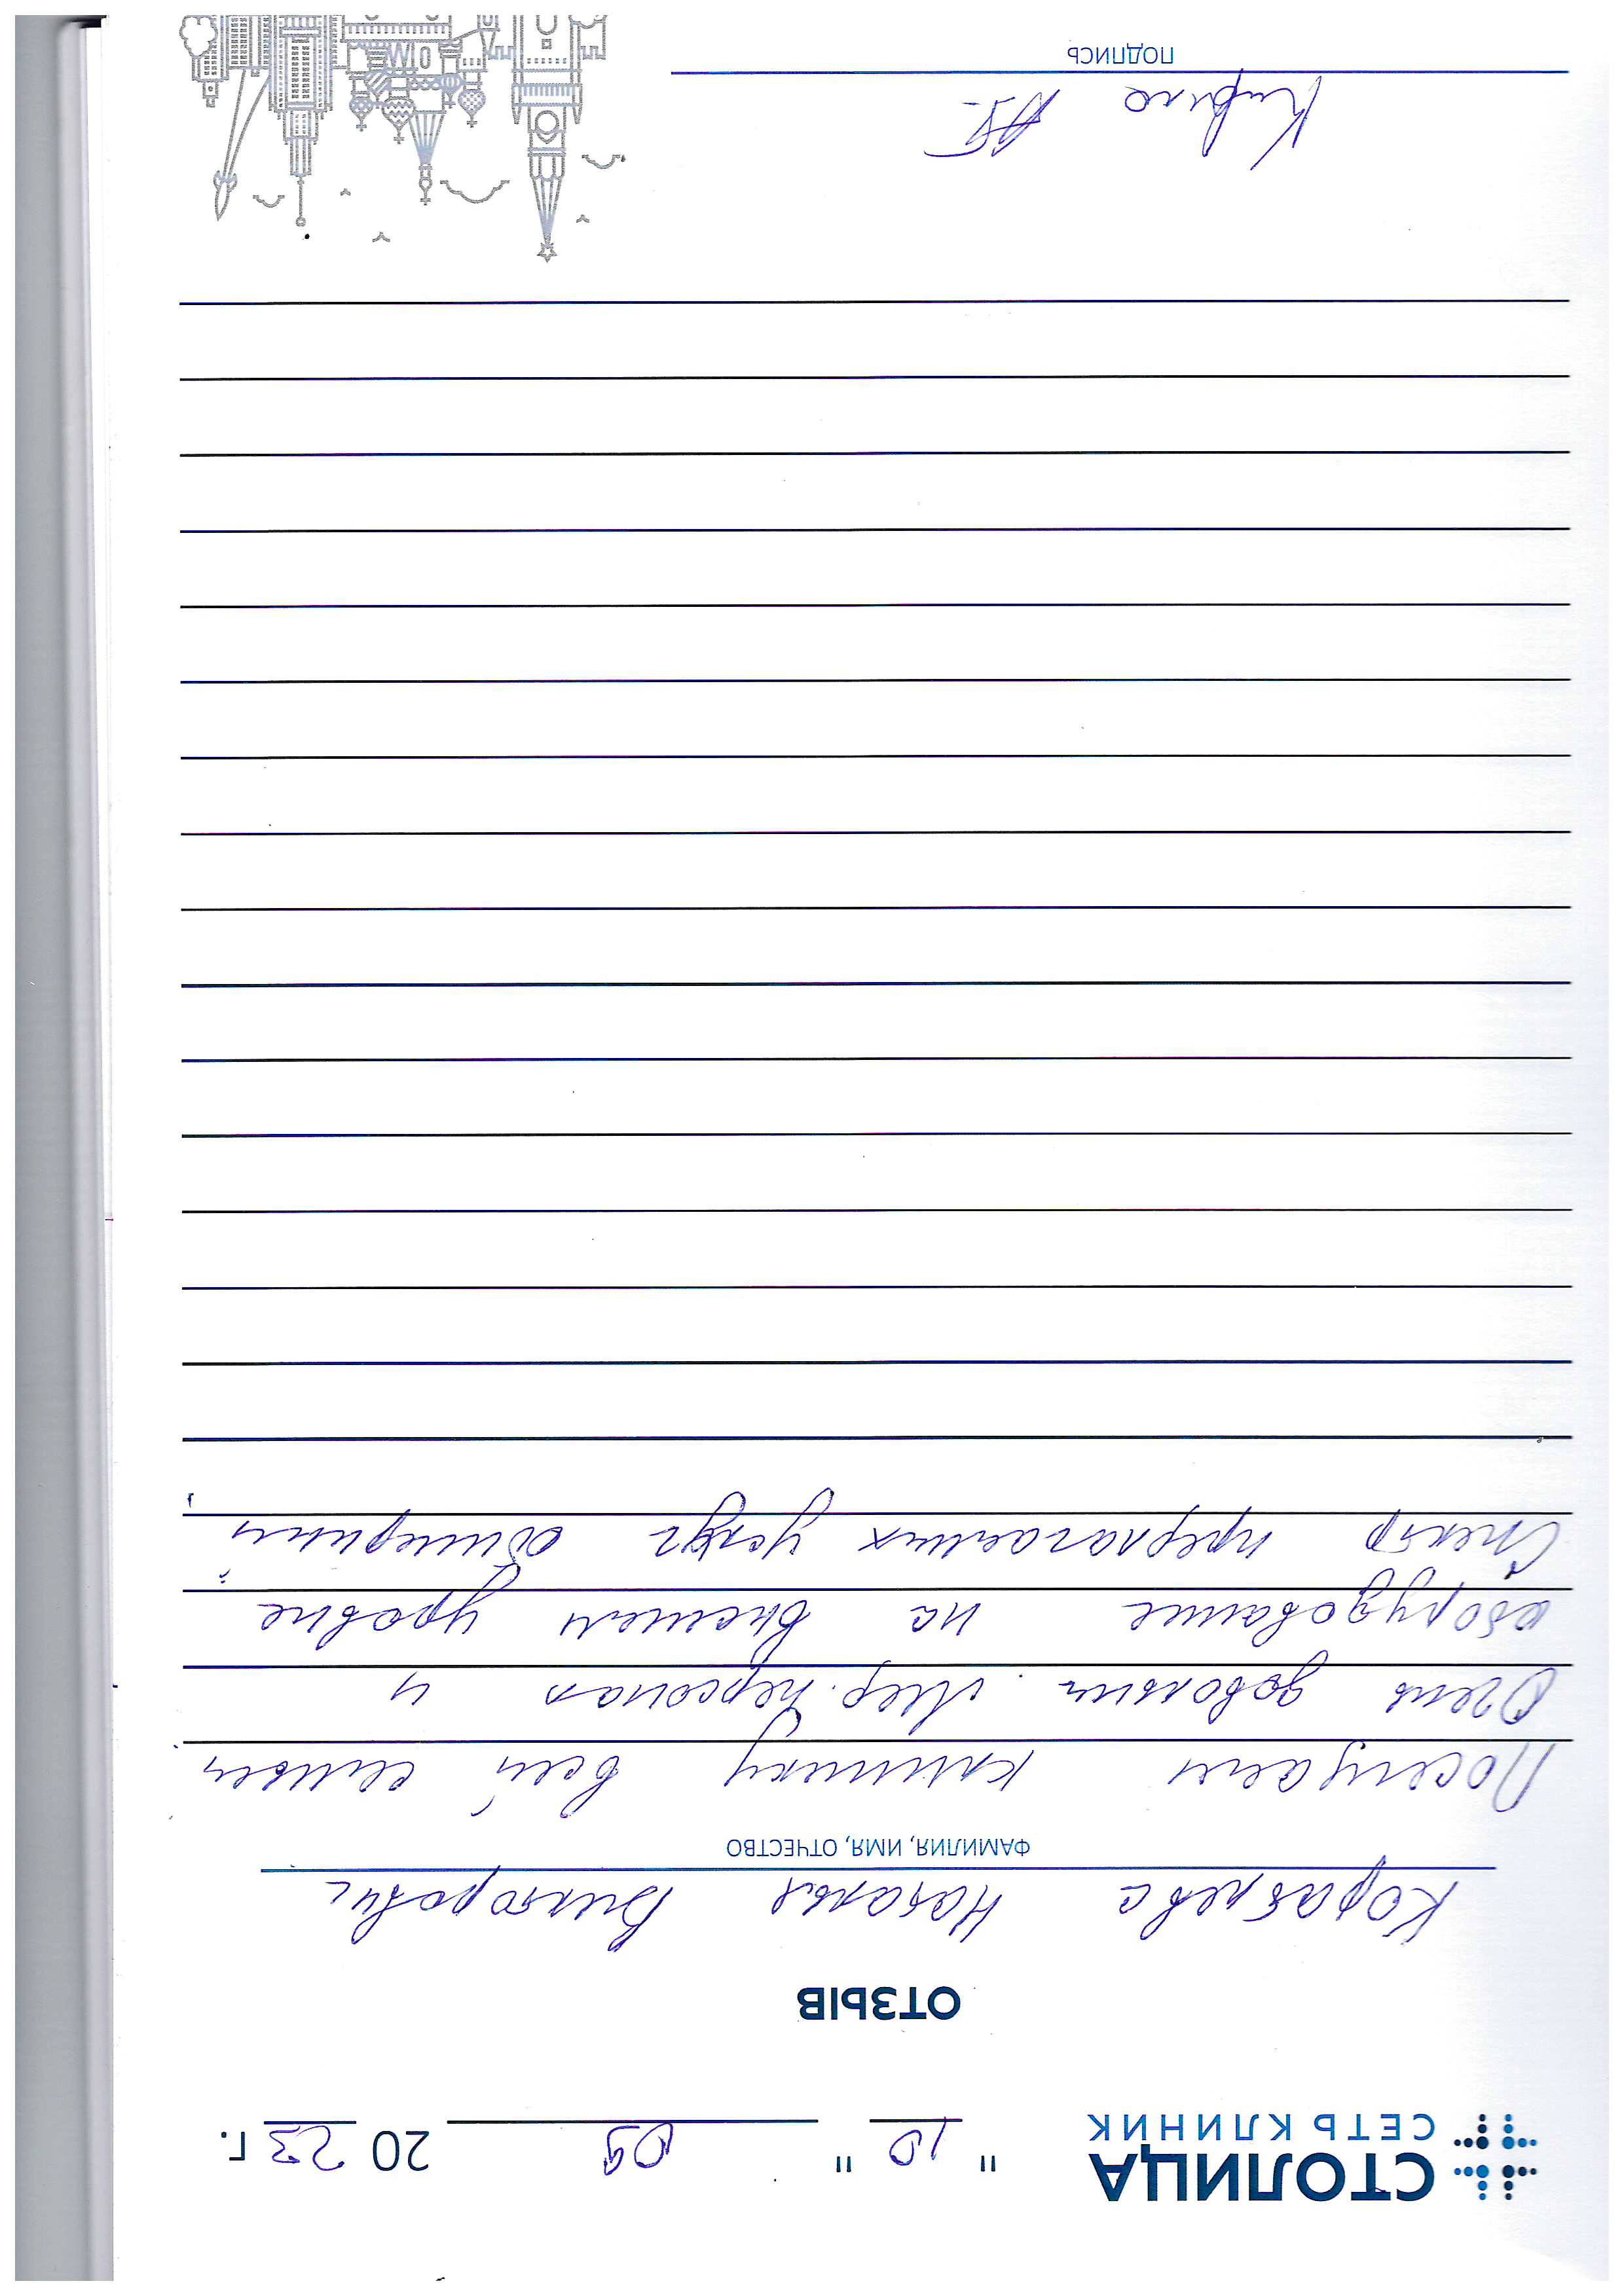 СТОЛИЦА
СЕТЬ КЛИНИК
" 10 " 09 20 23 г.
ОТЗЫВ
Кораблева Наталья Викторовн
ФАМИЛИЯ, ИМЯ, ОТЧЕСТВО
Посещаем клинику всей семьей.
Очень довольны. Мед. персонал и
оборудование на высшем уровне.
Спектр предлагаемых услуг обширный
ПОДПИСЬ